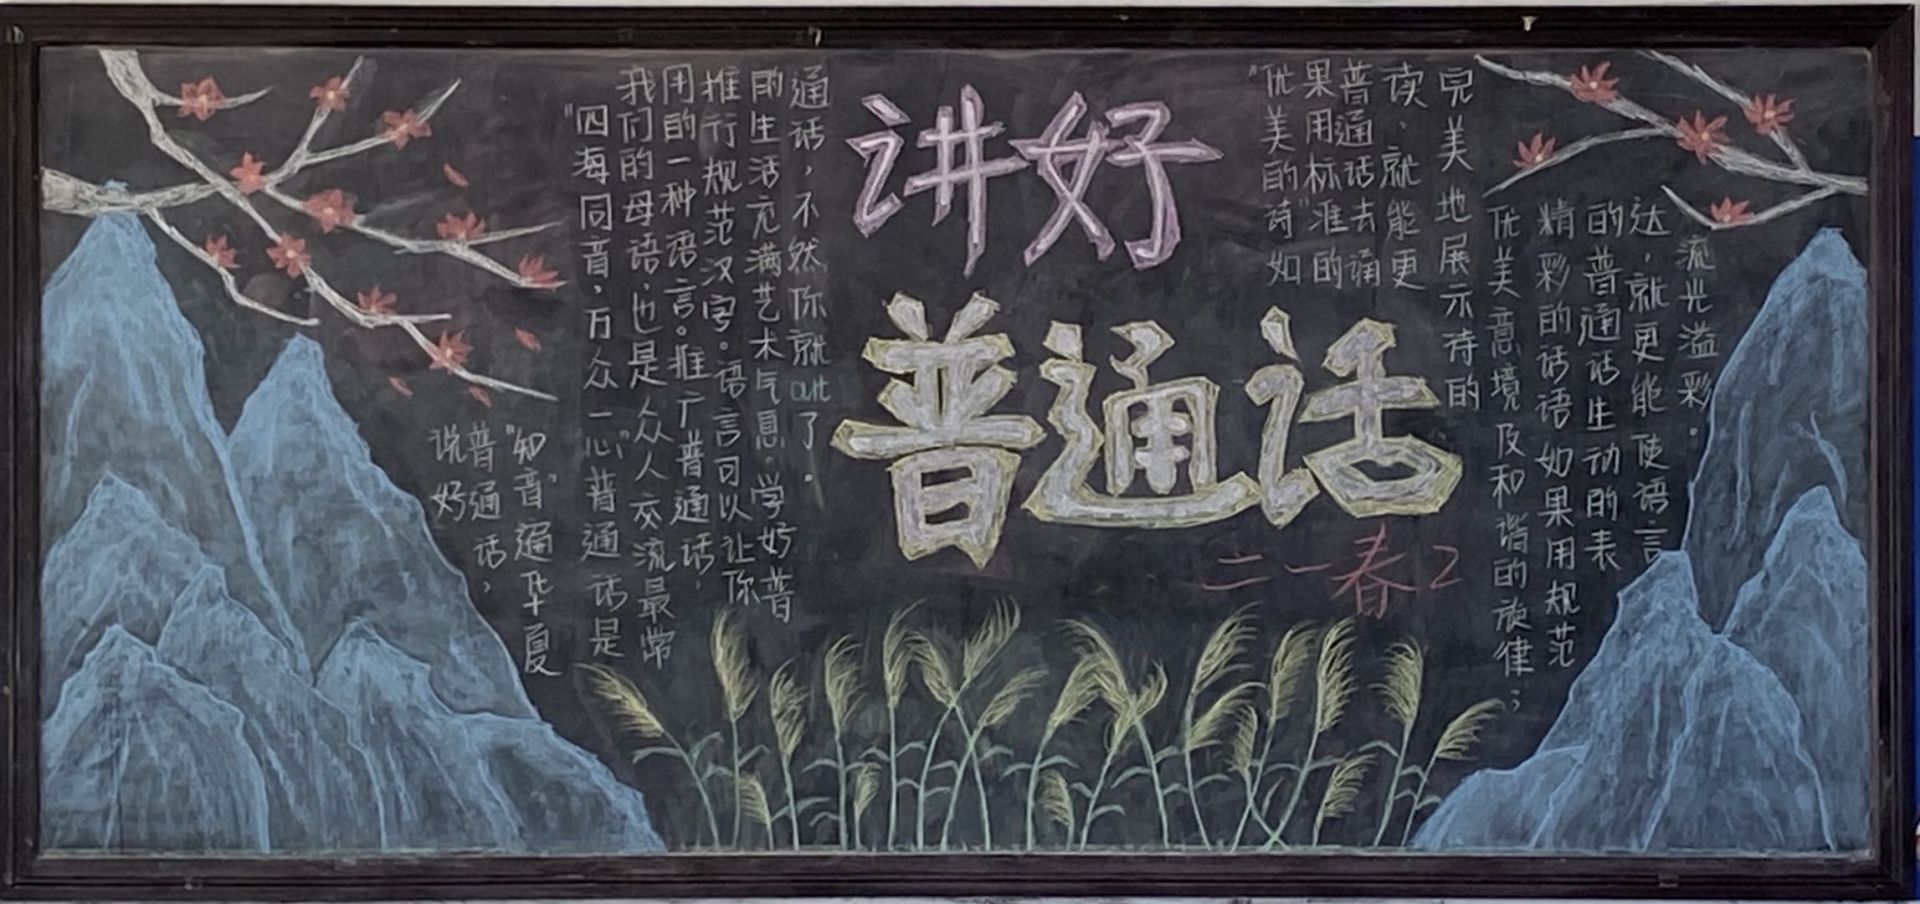 讲好
普通话
二一春2
说好
普通话，
“知音”遍华夏
“四海同音，万众一心”普通话是
我们的母语，也是众人交流最常
用的一种语言。推广普通话，
推行规范汉字。语言可以让你
的生活充满艺术气息，学好普
通话，不然你就out了。
“优美的诗”如
果用标准的
普通话去诵
读，就能更
完美地展示诗的
优美意境及和谐的旋律；
精彩的话语如果用规范
的普通话生动的表
达，就更能使语言
流光溢彩。